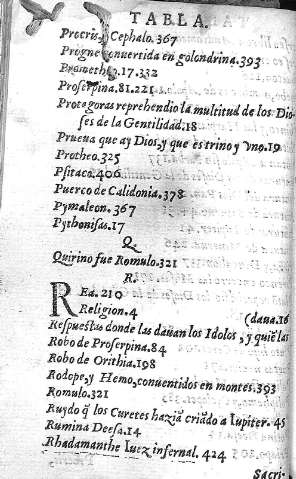 TABLA.
Procris, y Cephalo. 367
Progne conuertida en golondrina. 393
Prometheo. 17. 332
Proserpina. 81. 221
Protegoras reprehendio la multitud de los Dio-
ses de la Gentilidad. 18
Prueua que ay Dios, y que es trino y vno. 19
Protheo. 325
Psitaco. 406
Puerco de Calidonia. 378
Pymaleon. 367
Pythonisas. 17
Q.
Quirino fue Romulo. 321
R.
REa. 210
Religion. 4
Respuestas donde las dauan los Idolos, y quiē las (daua. 16
Robo de Proserpina. 84
Robo de Orithia. 198
Rodope, y Hemo, conuentidos en montes. 393
Romulo. 321
Ruydo q̃ los Curetes haziã criãdo a Iupiter. 45
Rumina Deesa. 14
Rhadamanthe Iuez infernal. 424
Sacri-